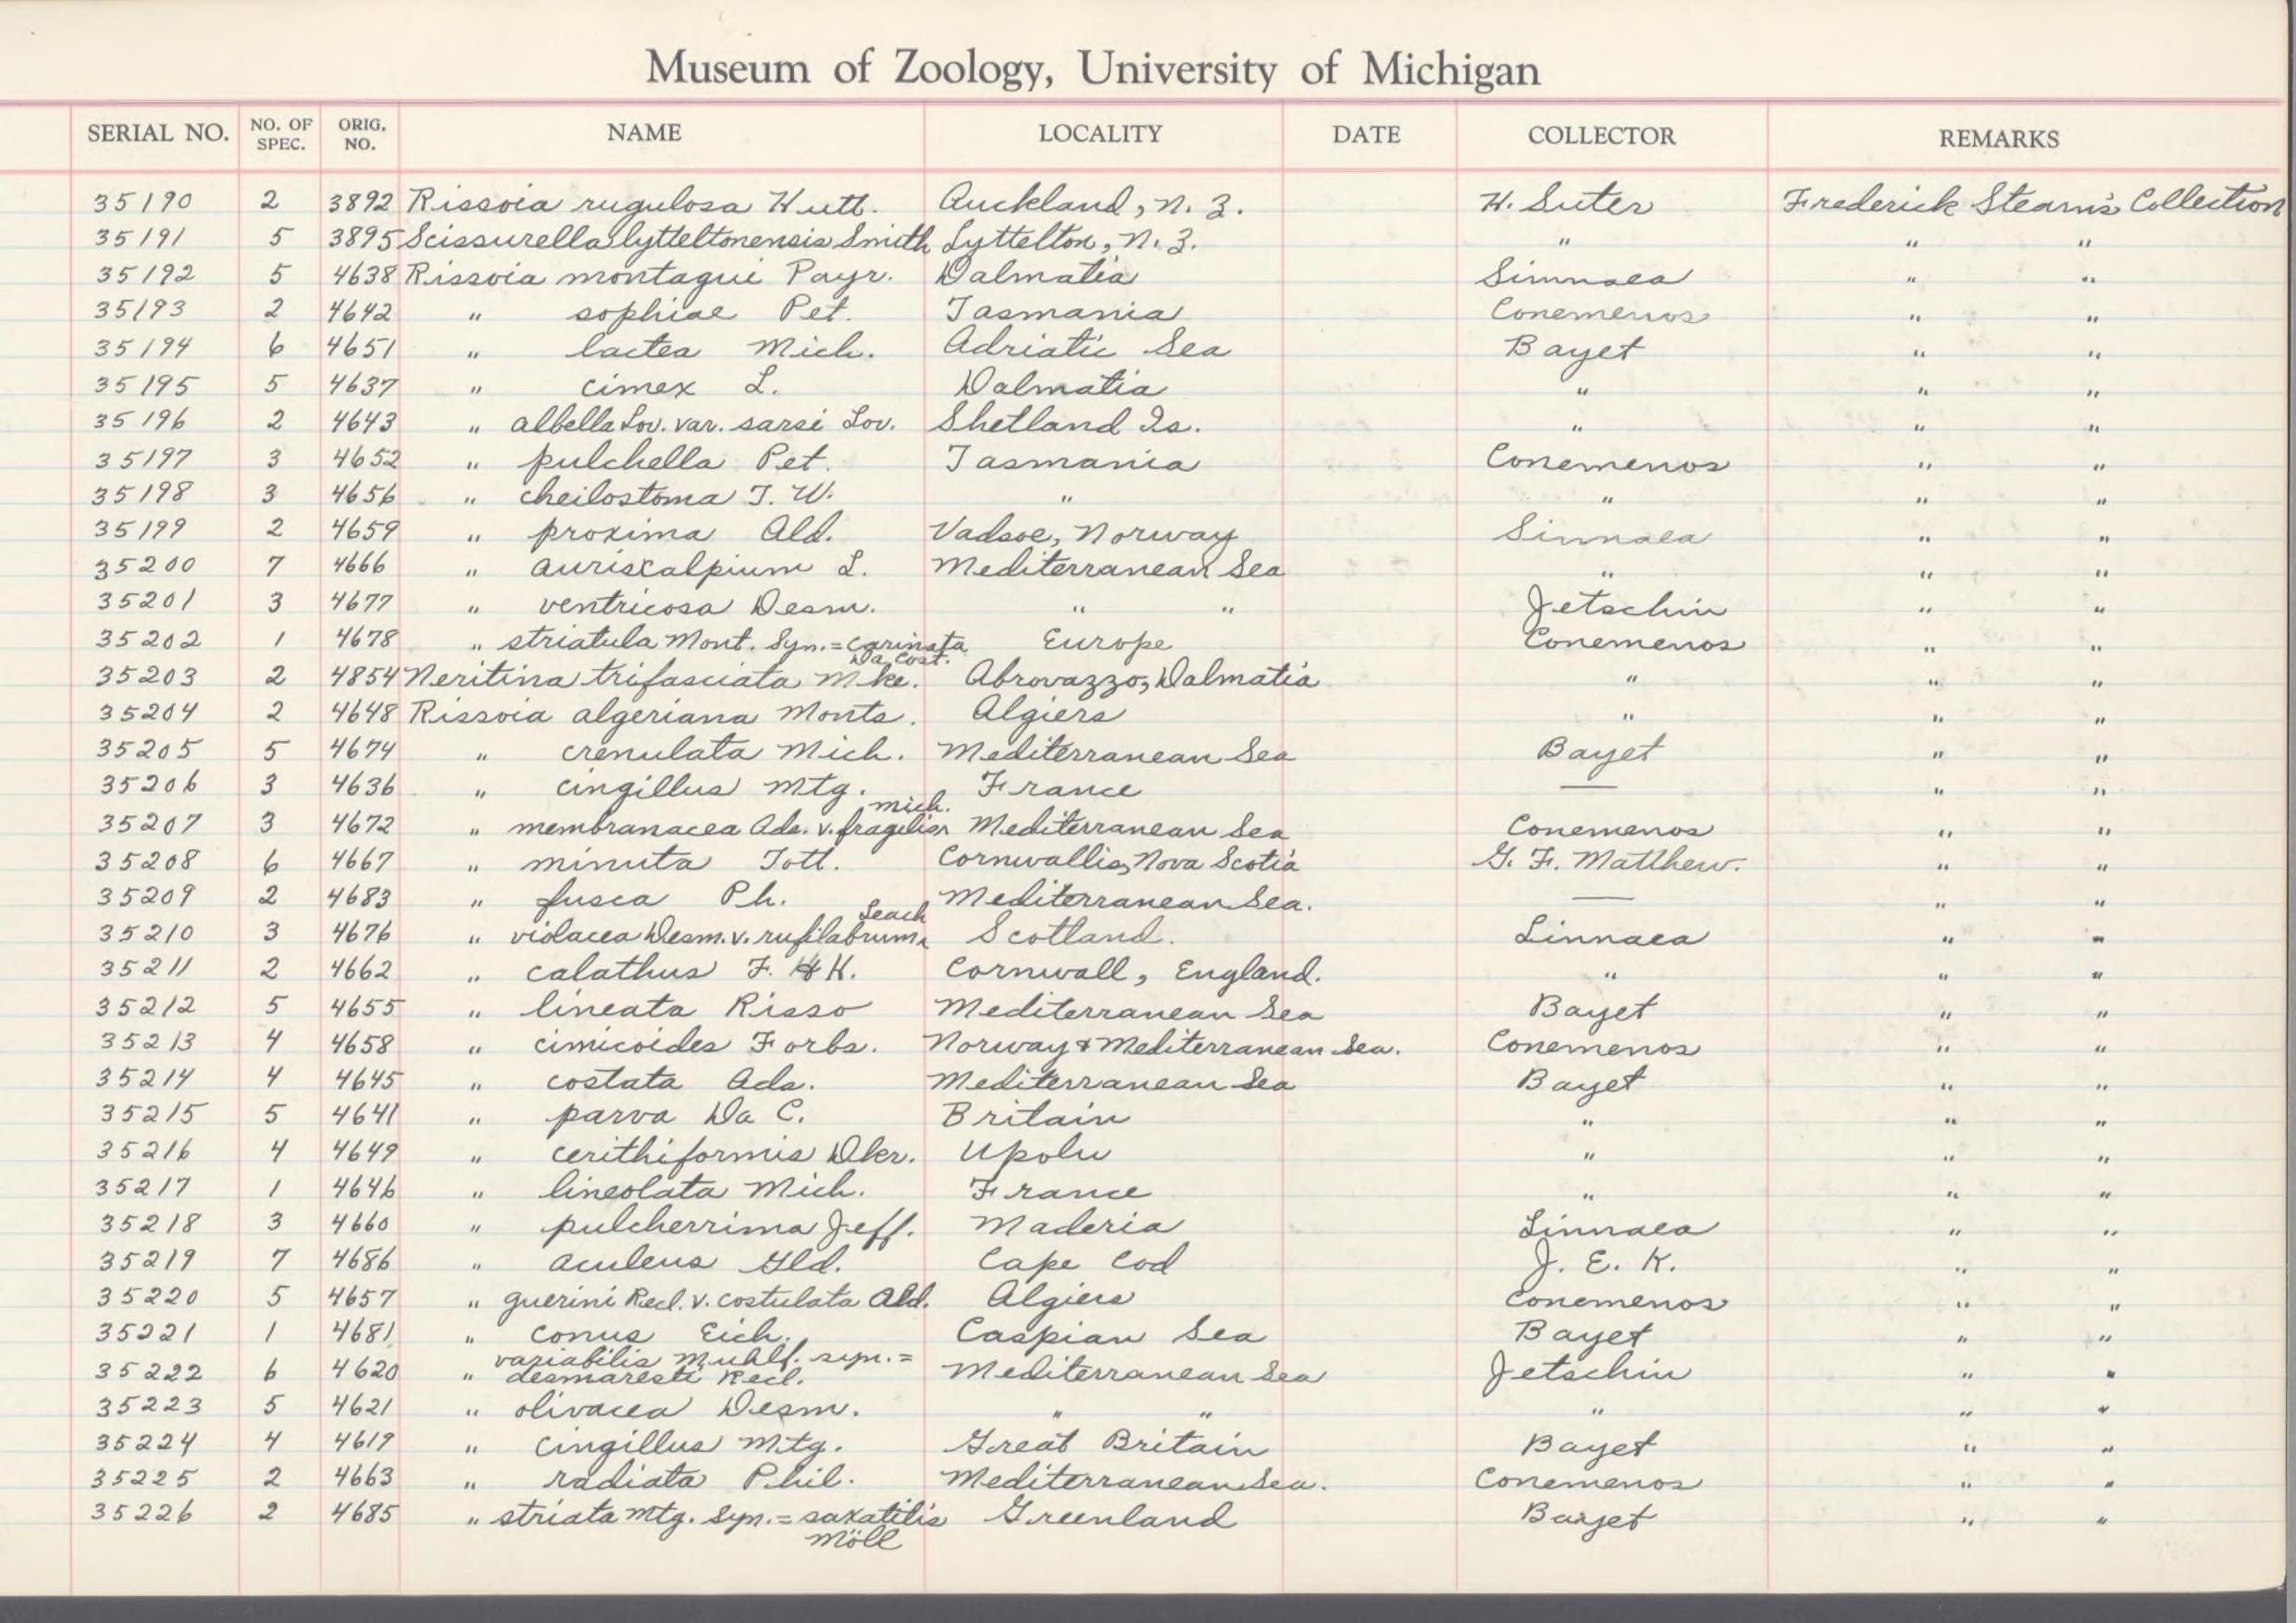 Museum of Zoology, University of Michigan
SERIAL NO. NO. OF SPEC. ORIG. NO. NAME LOCALITY DATE COLLECTOR REMARKS
35190 2 3892 Rissoia rugulosa Hutt. Auckland, N. Z. H. Suter Frederick Stearns Collection
35191 5 3895 Scissurella lytteltonensis Smith Lyttelton, N. Z. " " "
35192 5 4638 Rissoia montagui Payr. Dalmatia Linnaea " "
35193 2 4642 " sophiae Pet. Tasmania Conemenos " "
35194 6 4651 " lactea Mich. Adriatic Sea Bayet " "
35195 5 4637 " cimex L. Dalmatia " " "
35196 2 4643 " albella Lov. var. sarsi Lov. Shetland Is. " " "
35197 3 4652 " pulchella Pet. Tasmania Conemenos " "
35198 3 4656 " cheilostoma T. W. " " " "
35199 2 4659 " proxima Ald. Vadsoe, Norway Linnaea " "
35200 7 4666 " auriscalpium L. Mediterranean Sea " " "
35201 3 4677 " ventricosa Desm. " " Jetschin " "
35202 1 4678 " striatula Mont. Syn. = carinata Da Cost. Europe Conemenos " "
35203 2 4854 Neritina trifasciata Mke. Abrovazzo, Dalmatia " " "
35204 2 4648 Rissoia algeriana Monts. Algiers " " "
35205 5 4674 " crenulata Mich. Mediterranean Sea Bayet " "
35206 3 4636 " cingillus Mtg. France — " "
35207 3 4672 " membranacea Ads. v. fragilior Mich. Mediterranean Sea Conemenos " "
35208 6 4667 " minuta Tott. Cornwallis, Nova Scotia G. F. Matthew. " "
35209 2 4683 " fusca Ph. Mediterranean Sea. — " "
35210 3 4676 " violacea Desm. v. rufilabrum Leach Scotland. Linnaea " "
35211 2 4662 " calathus F. & H. Cornwall, England. " " "
35212 5 4655 " lineata Risso Mediterranean Sea Bayet " "
35213 4 4658 " cimicoides Forbs. Norway & Mediterranean Sea. Conemenos " "
35214 4 4645 " costata Ada. Mediterranean Sea Bayet " "
35215 5 4641 " parva Da C. Britain " " "
35216 4 4649 " cerithiformis Dkr. Upolu " " "
35217 1 4646 " lineolata Mich. France " " "
35218 3 4660 " pulcherrima Jeff. Maderia Linnaea " "
35219 7 4686 " aculeus Gld. Cape Cod J. E. K. " "
35220 5 4657 " guerini Recl. v. costulata Ald. Algiers Conemenos " "
35221 1 4681 " conus Eich. Caspian Sea Bayet " "
35222 6 4620 " variabilis Muhlf. syn. = desmaresti Recl. Mediterranean Sea Jetschin " "
35223 5 4621 " olivacea Desm. " " " " "
35224 4 4619 " cingillus Mtg. Great Britain Bayet " "
35225 2 4663 " radiata Phil. Mediterranean Sea. Conemenos " "
35226 2 4685 " striata Mtg. Syn. = saxatilis Möll Greenland Bayet " "